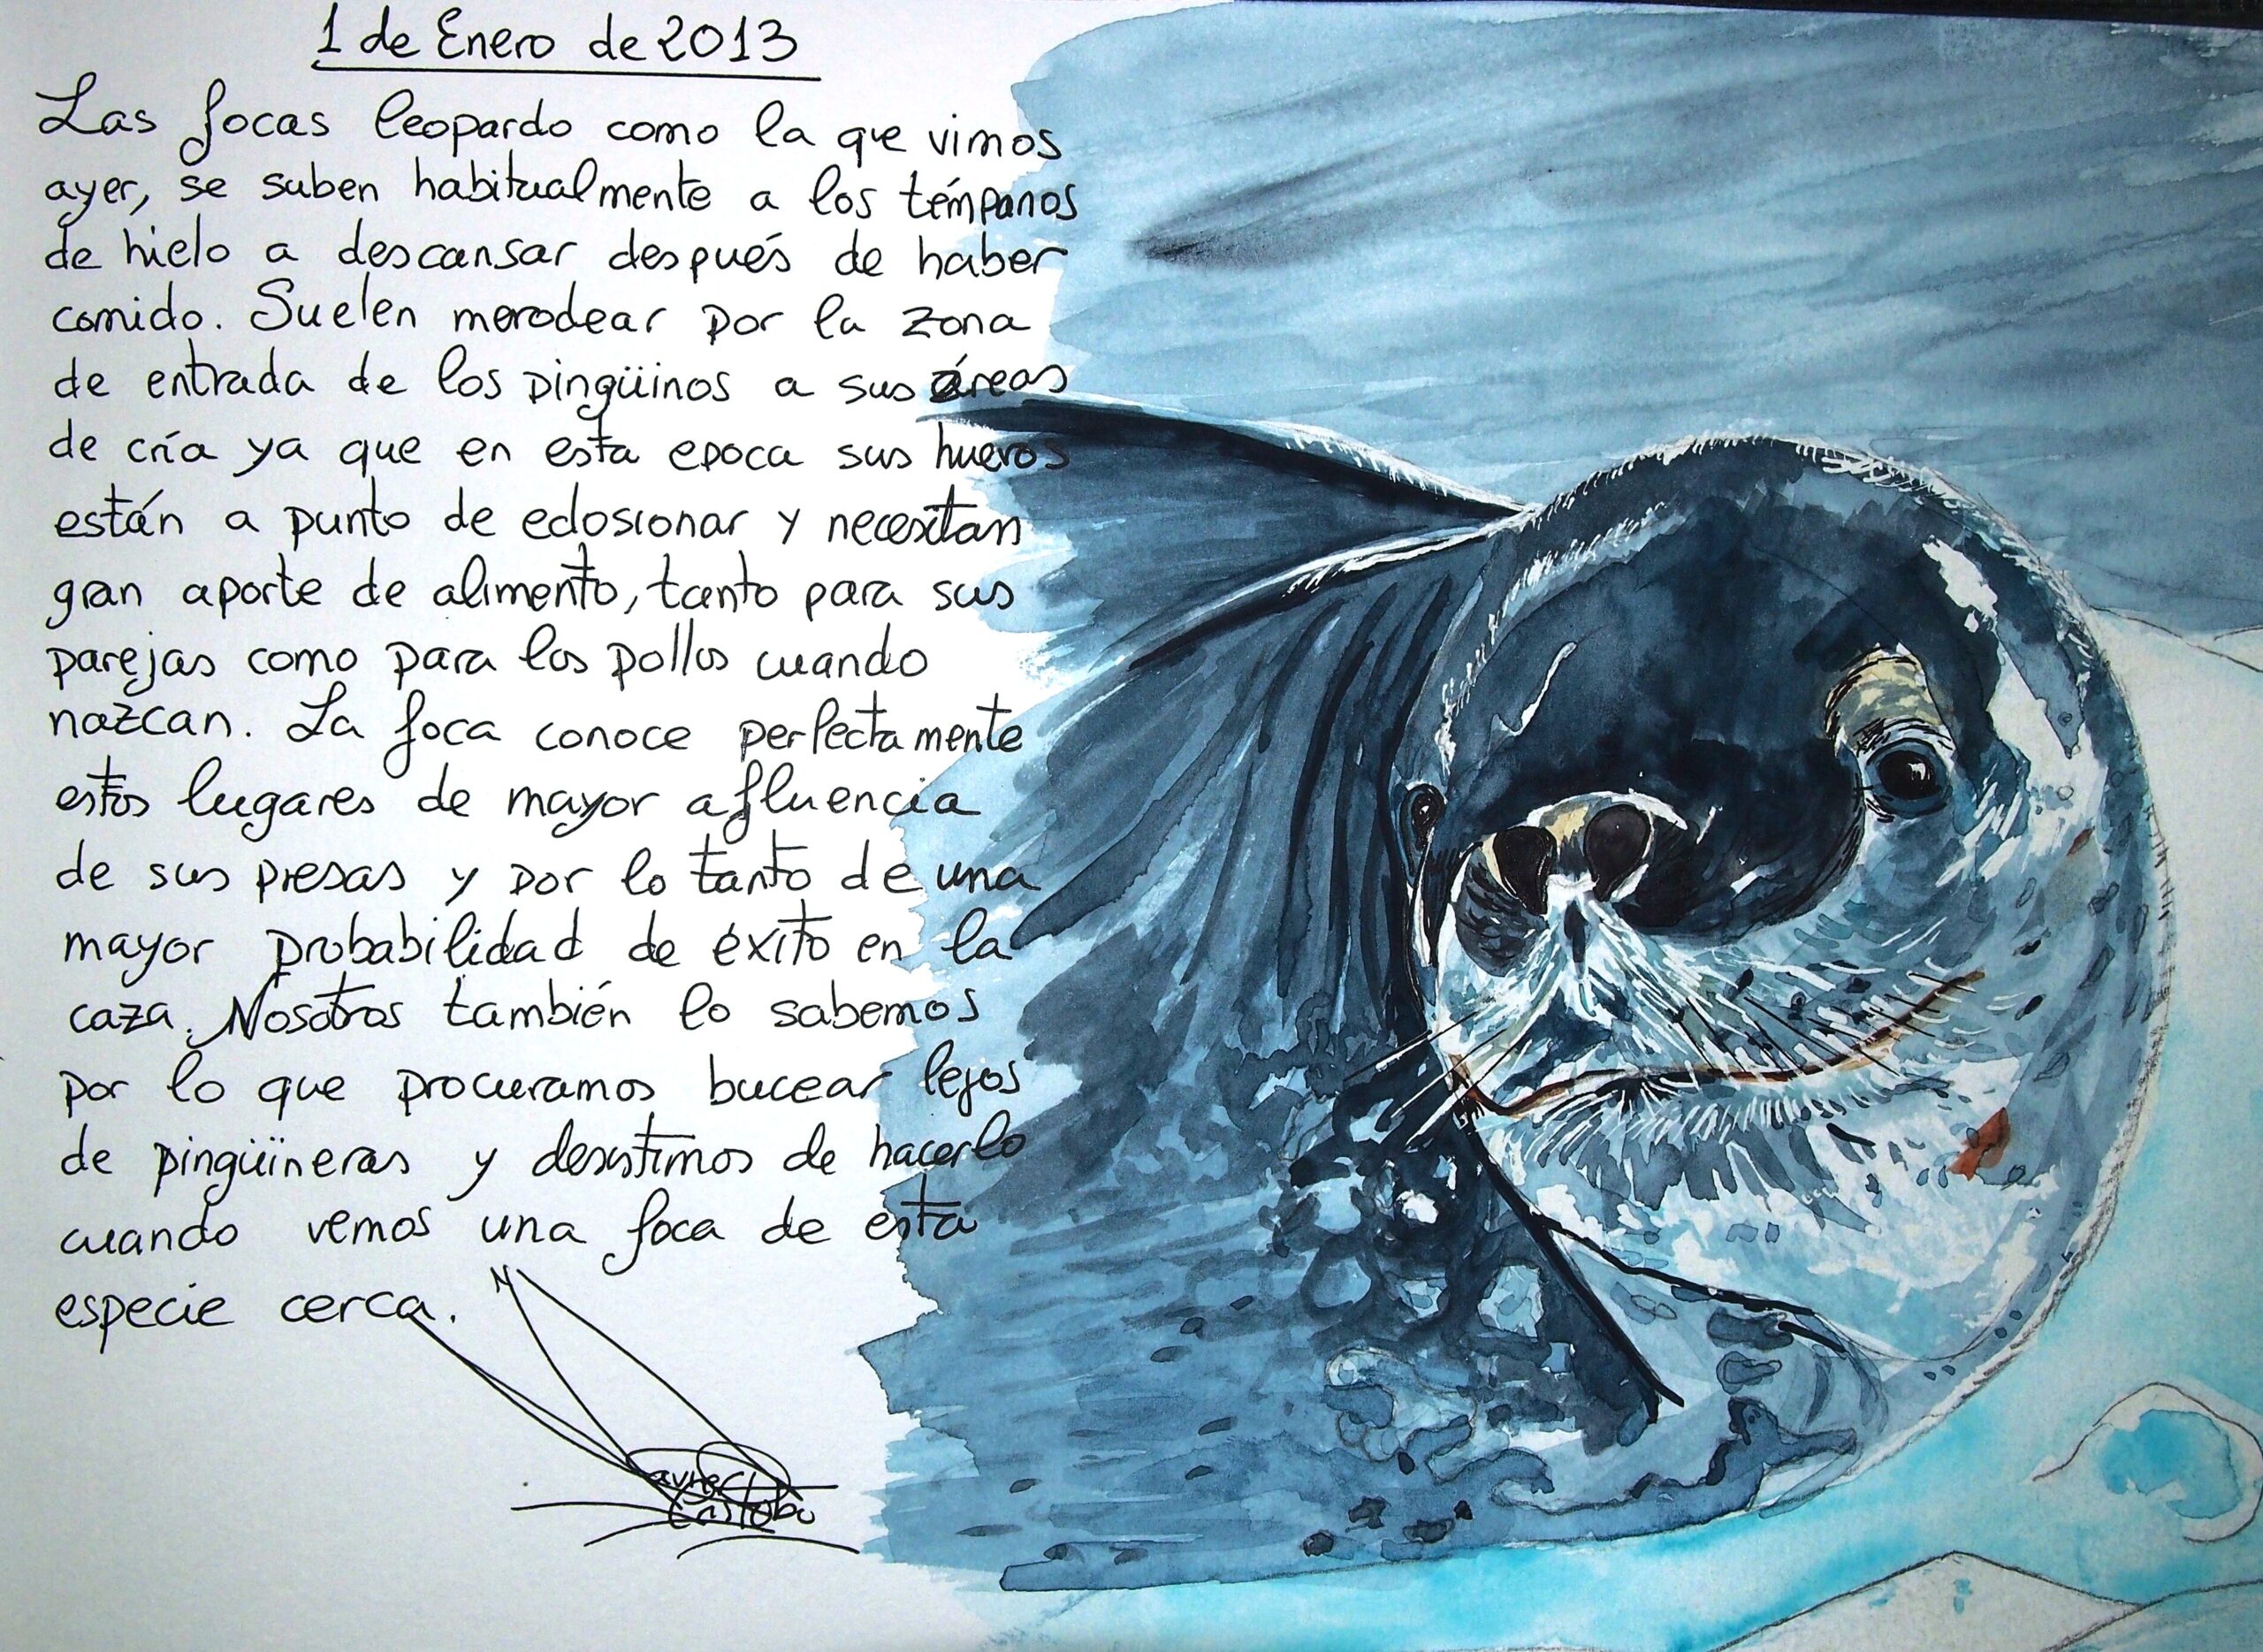 1 de Enero de 2013
Las focas leopardo como la que vimos
ayer, se suben habitualmente a los témpanos
de hielo a descansar después de haber
comido. Suelen merodear por la zona
de entrada de los pingüinos a sus áreas
de cría ya que en esta epoca sus huevos
están a punto de eclosionar y necesitan
gran aporte de alimento, tanto para sus
parejas como para los pollos cuando
nazcan. La foca conoce perfectamente
estos lugares de mayor afluencia
de sus presas y por lo tanto de una
mayor probabilidad de éxito en la
caza. Nosotros también lo sabemos
por lo que procuramos bucear lejos
de pingüineras y desistimos de hacerlo
cuando vemos una foca de esta
especie cerca.